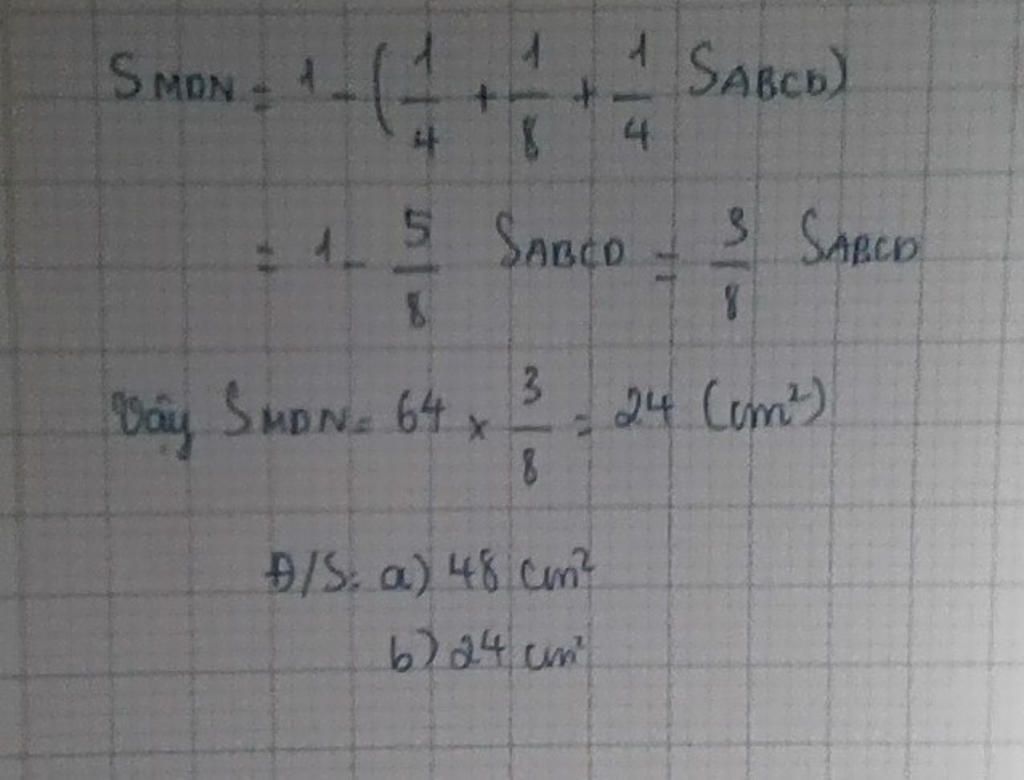 SMDN = 1 - (1/4 + 1/8 + 1/4 SABCD)
= 1 - 5/8 SABCD = 3/8 SABCD
Vậy SMDN = 64 x 3/8 = 24 (cm²)
Đ/S: a) 48 cm²
b) 24 cm²